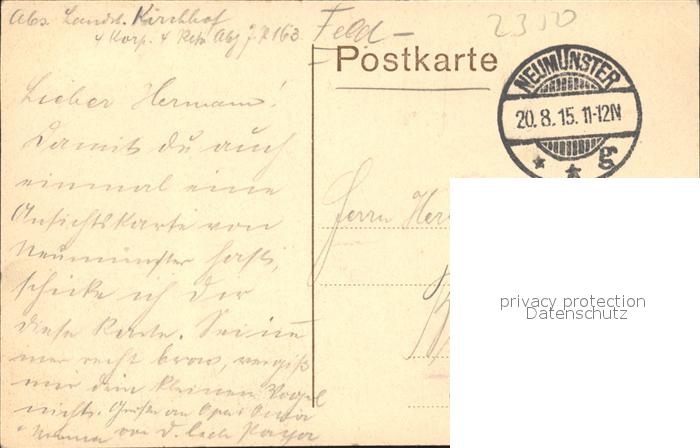 Abs. Landst. Kirchhof
4 Korp. 4 Rekr. Abt. J. R 163.
Feld-
Postkarte
2310
NEUMÜNSTER
20. 8. 15. 11-12N
* * g
Lieber Hermann!
Damit du auch
einmal eine
Ansichtskarte von
Neumünster hast,
schicke ich dir
diese Karte. Sei im
mer recht brav, vergiß
mir dein kleinen Vogel
nichts. Grüße an Opa Oma
Mama von d. lieb Papa
Herrn Her
privacy protection
Datenschutz